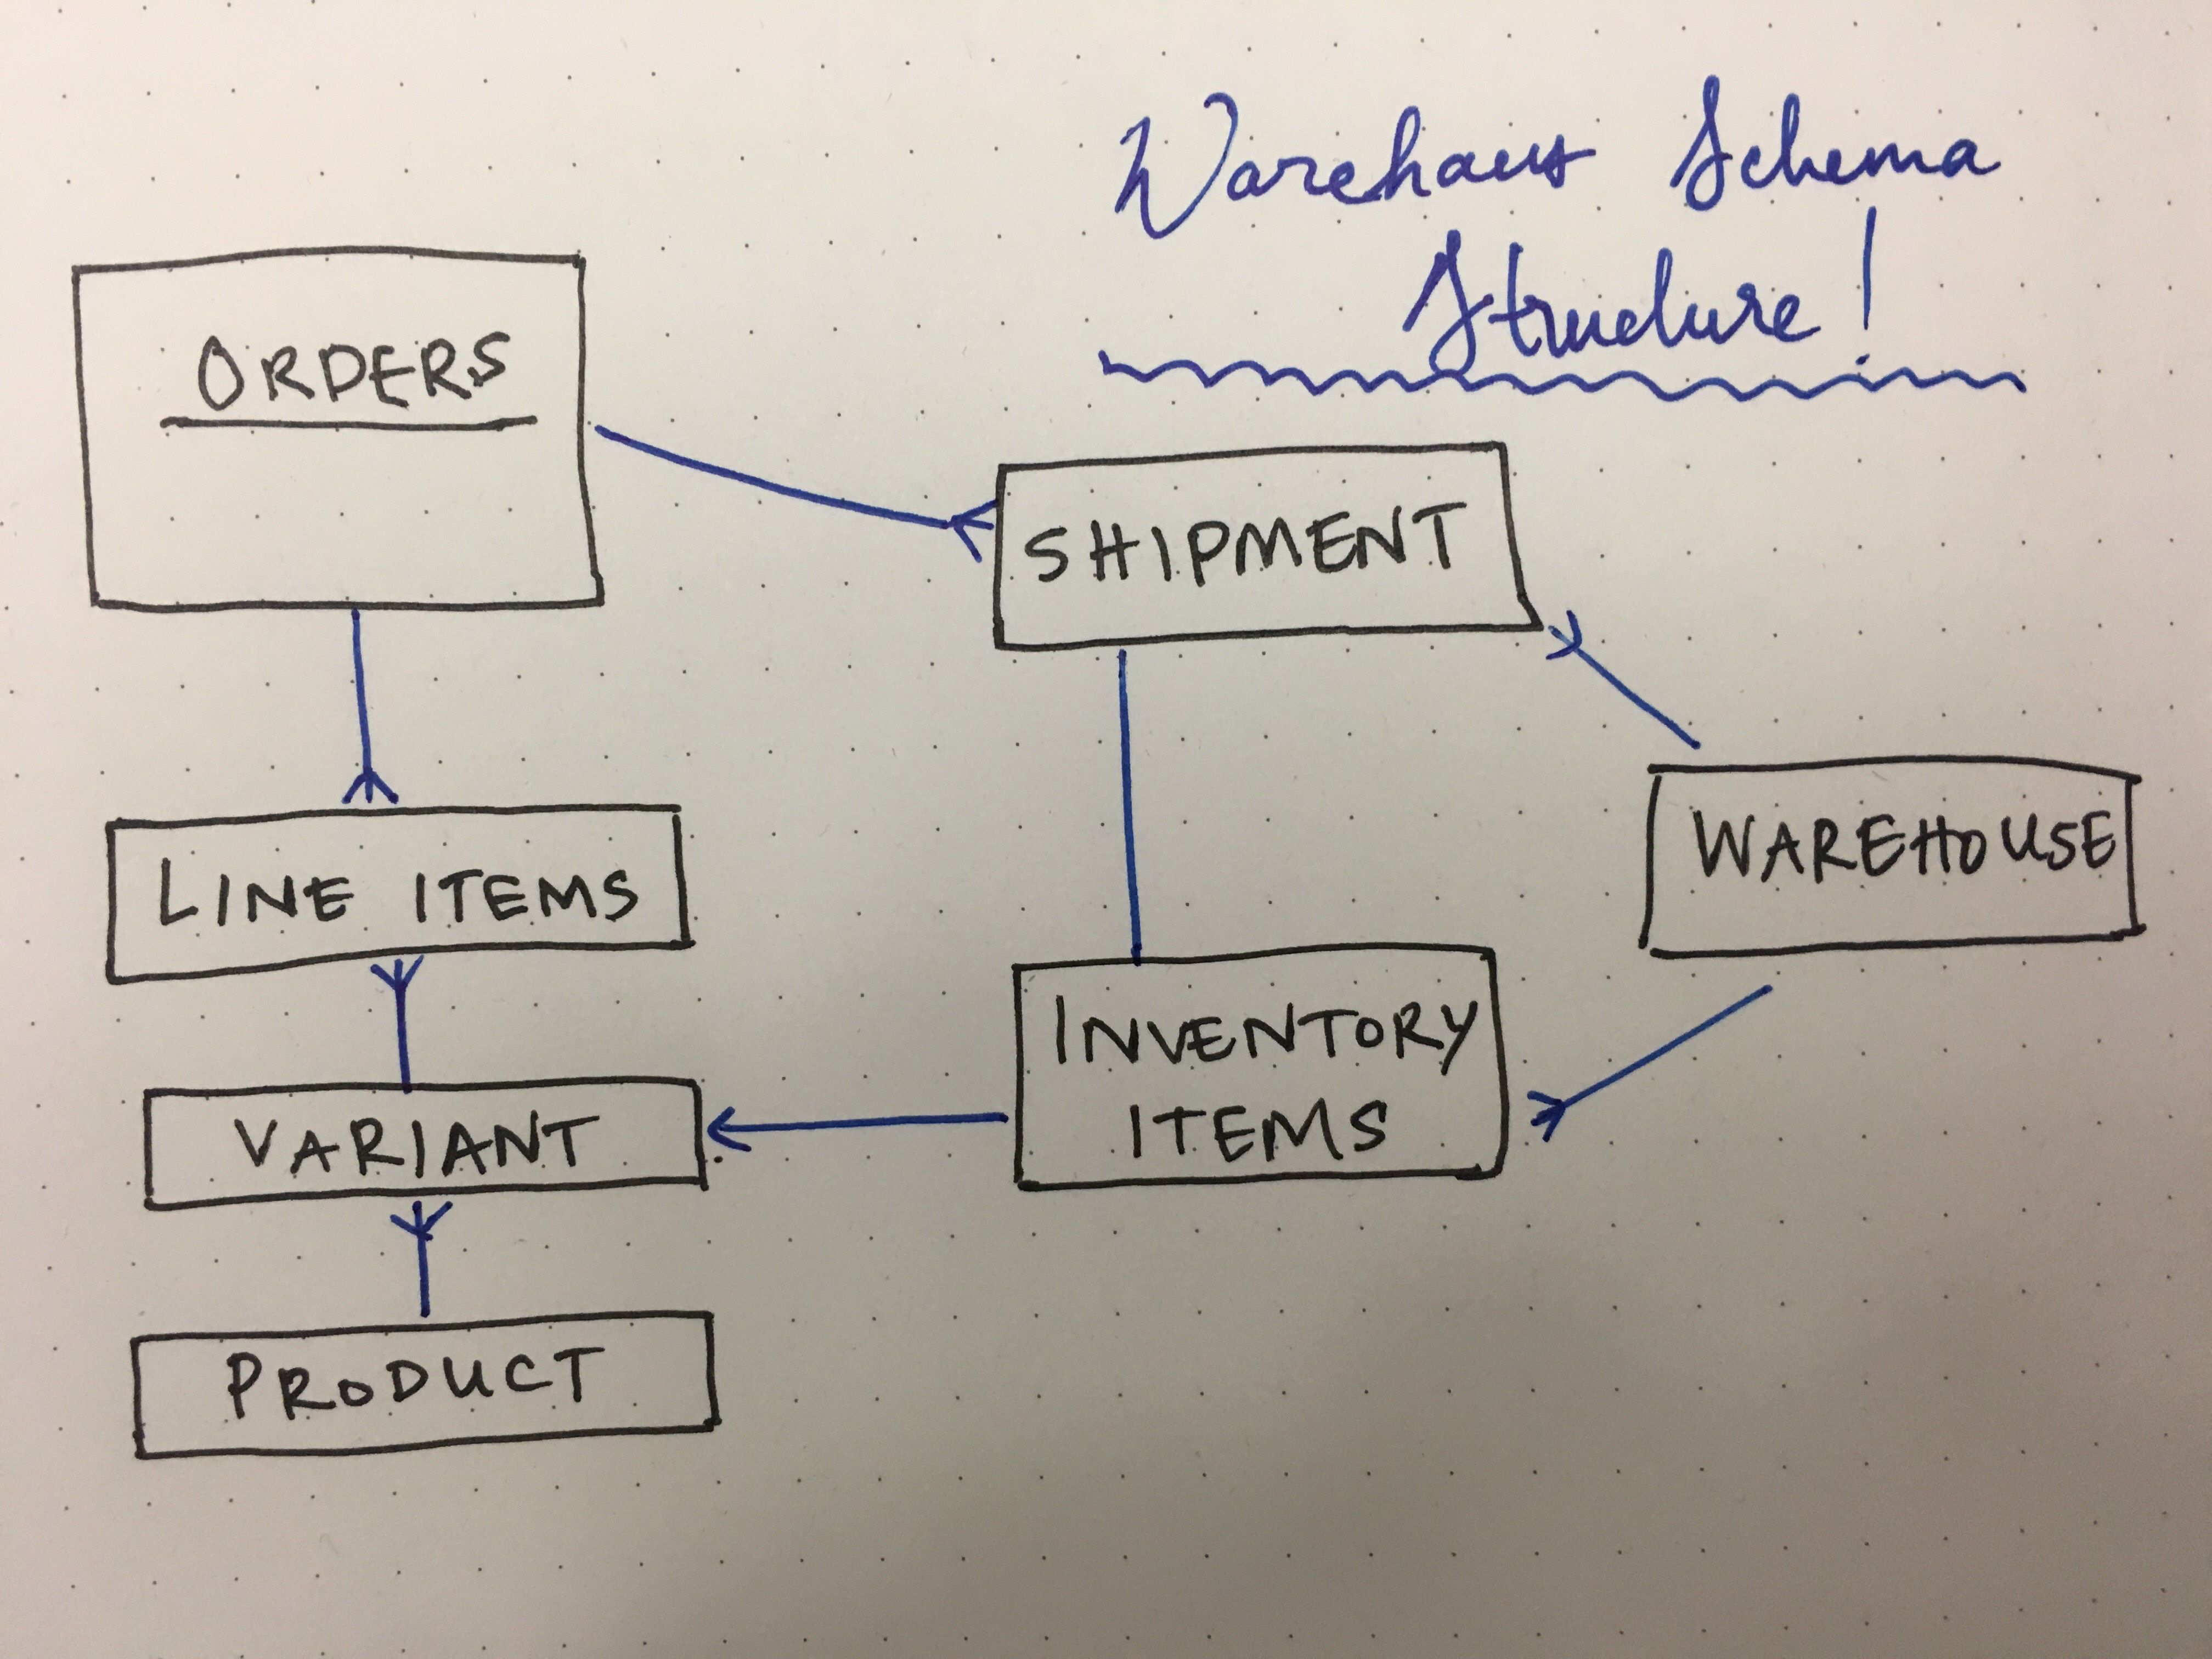 Warehaus Schema
Structure!
ORDERS
SHIPMENT
LINE ITEMS
WAREHOUSE
INVENTORY
ITEMS
VARIANT
PRODUCT